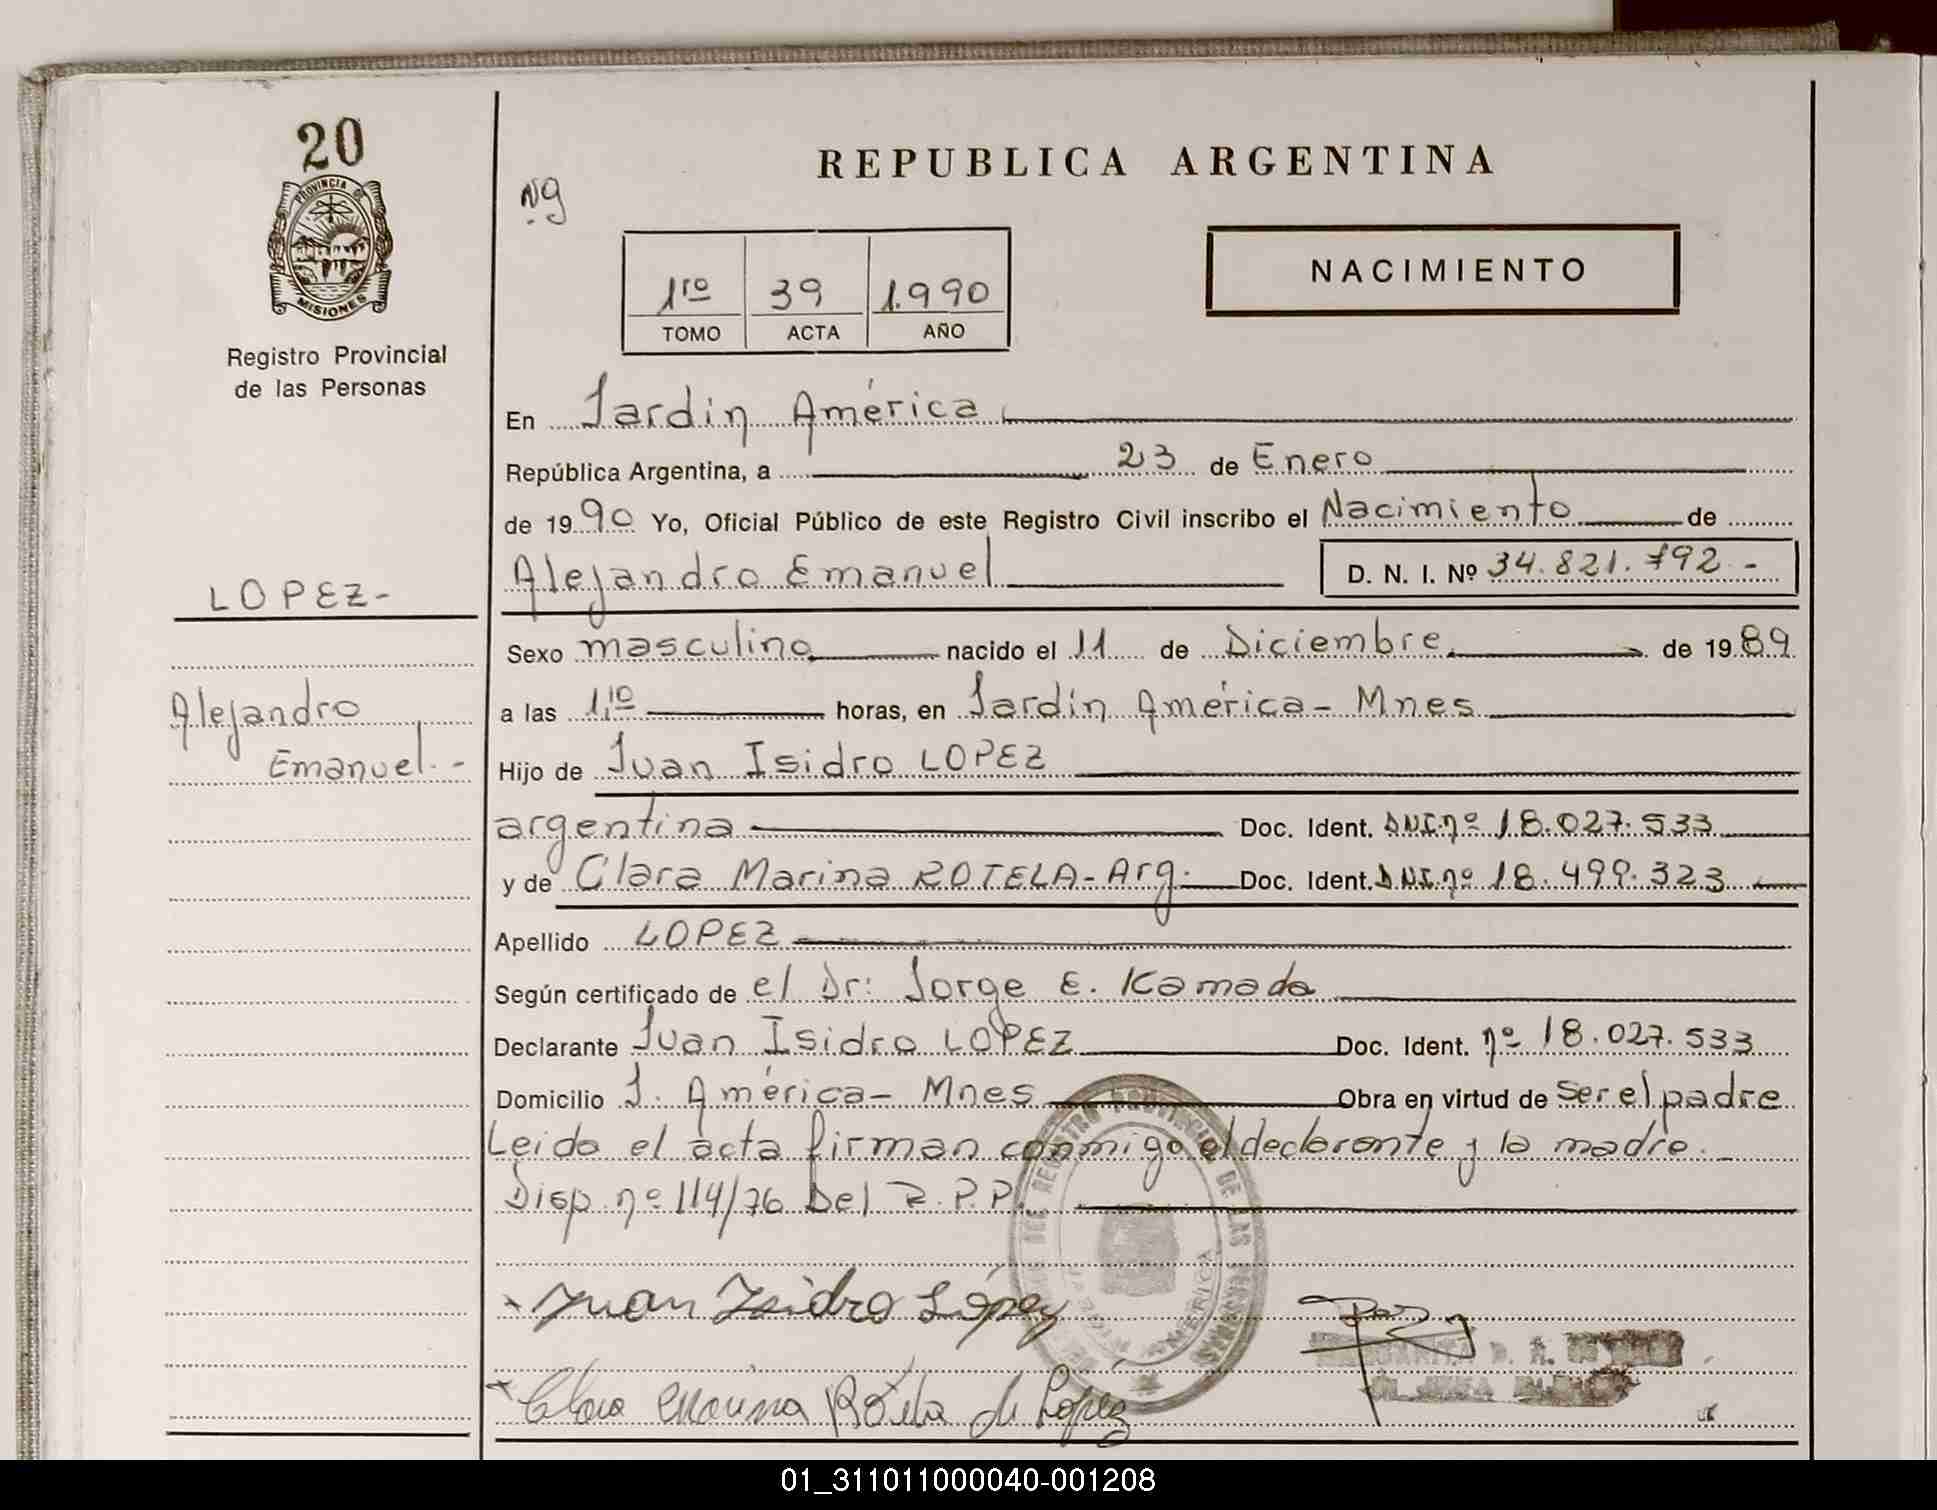 20
PROVINCIA DE
MISIONES
Registro Provincial
de las Personas
LOPEZ-
Alejandro
Emanuel.-
REPUBLICA ARGENTINA
1ro 39 1.990
TOMO ACTA AÑO
NACIMIENTO
En Jardin América
República Argentina, a 23 de Enero
de 1990 Yo, Oficial Público de este Registro Civil inscribo el Nacimiento de
Alejandro Emanuel D. N. I. Nº 34.821.792.-
Sexo masculino nacido el 11 de Diciembre de 1989
a las 1,10 horas, en Jardin América- Mnes
Hijo de Juan Isidro LOPEZ
argentina Doc. Ident. DNI.nº 18.027.533
y de Clara Marina ROTELA-Arg. Doc. Ident. DNI.nº 18.499.323
Apellido LOPEZ
Según certificado de el Dr: Jorge E. Kamada
Declarante Juan Isidro LOPEZ Doc. Ident. nº 18.027.533
Domicilio J. América- Mnes Obra en virtud de Ser el padre
Leida el acta firman conmigo el declarante y la madre.-
Disp. nº 114/76 Del R.P.P.
Juan Isidro López
Clara Marina Rotela de Lopez
01_311011000040-001208